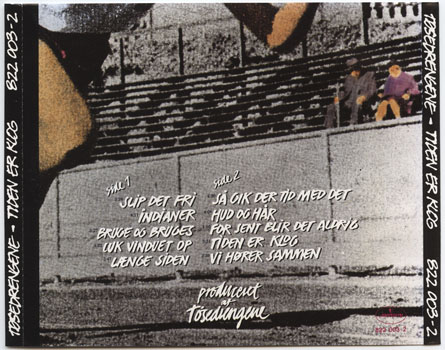 TØSEDRENGENE - TIDEN ER KLOG 822 003-2
side 1
SLIP DET FRI
INDIANER
BRUGE OG BRUGES
LUK VINDUET OP
LÆNGE SIDEN
side 2
SÅ GIK DER TID MED DET
HUD OG HÅR
FOR SENT BLIR DET ALDRIG
TIDEN ER KLOG
VI HØRER SAMMEN
produceret
af
Tøsedrengene
822 003-2
TØSEDRENGENE - TIDEN ER KLOG 822 003-2